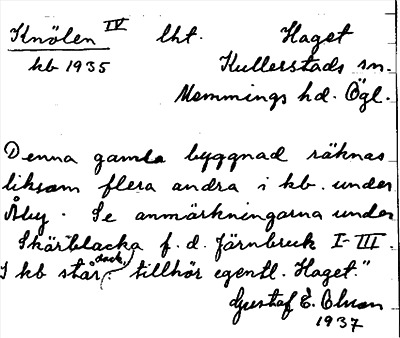 Knölen IV lht. Haget
kb 1935 Kullerstads sn.
Memmings hd. Ögl.
Denna gamla byggnad räknas
liksom flera andra i kb. under
Åby. Se anmärkningarna under
Skärblacka f. d. Järnbruk I-III.
I kb står dock: tillhör egentl. Haget."
Gustaf E. Olsson
1937